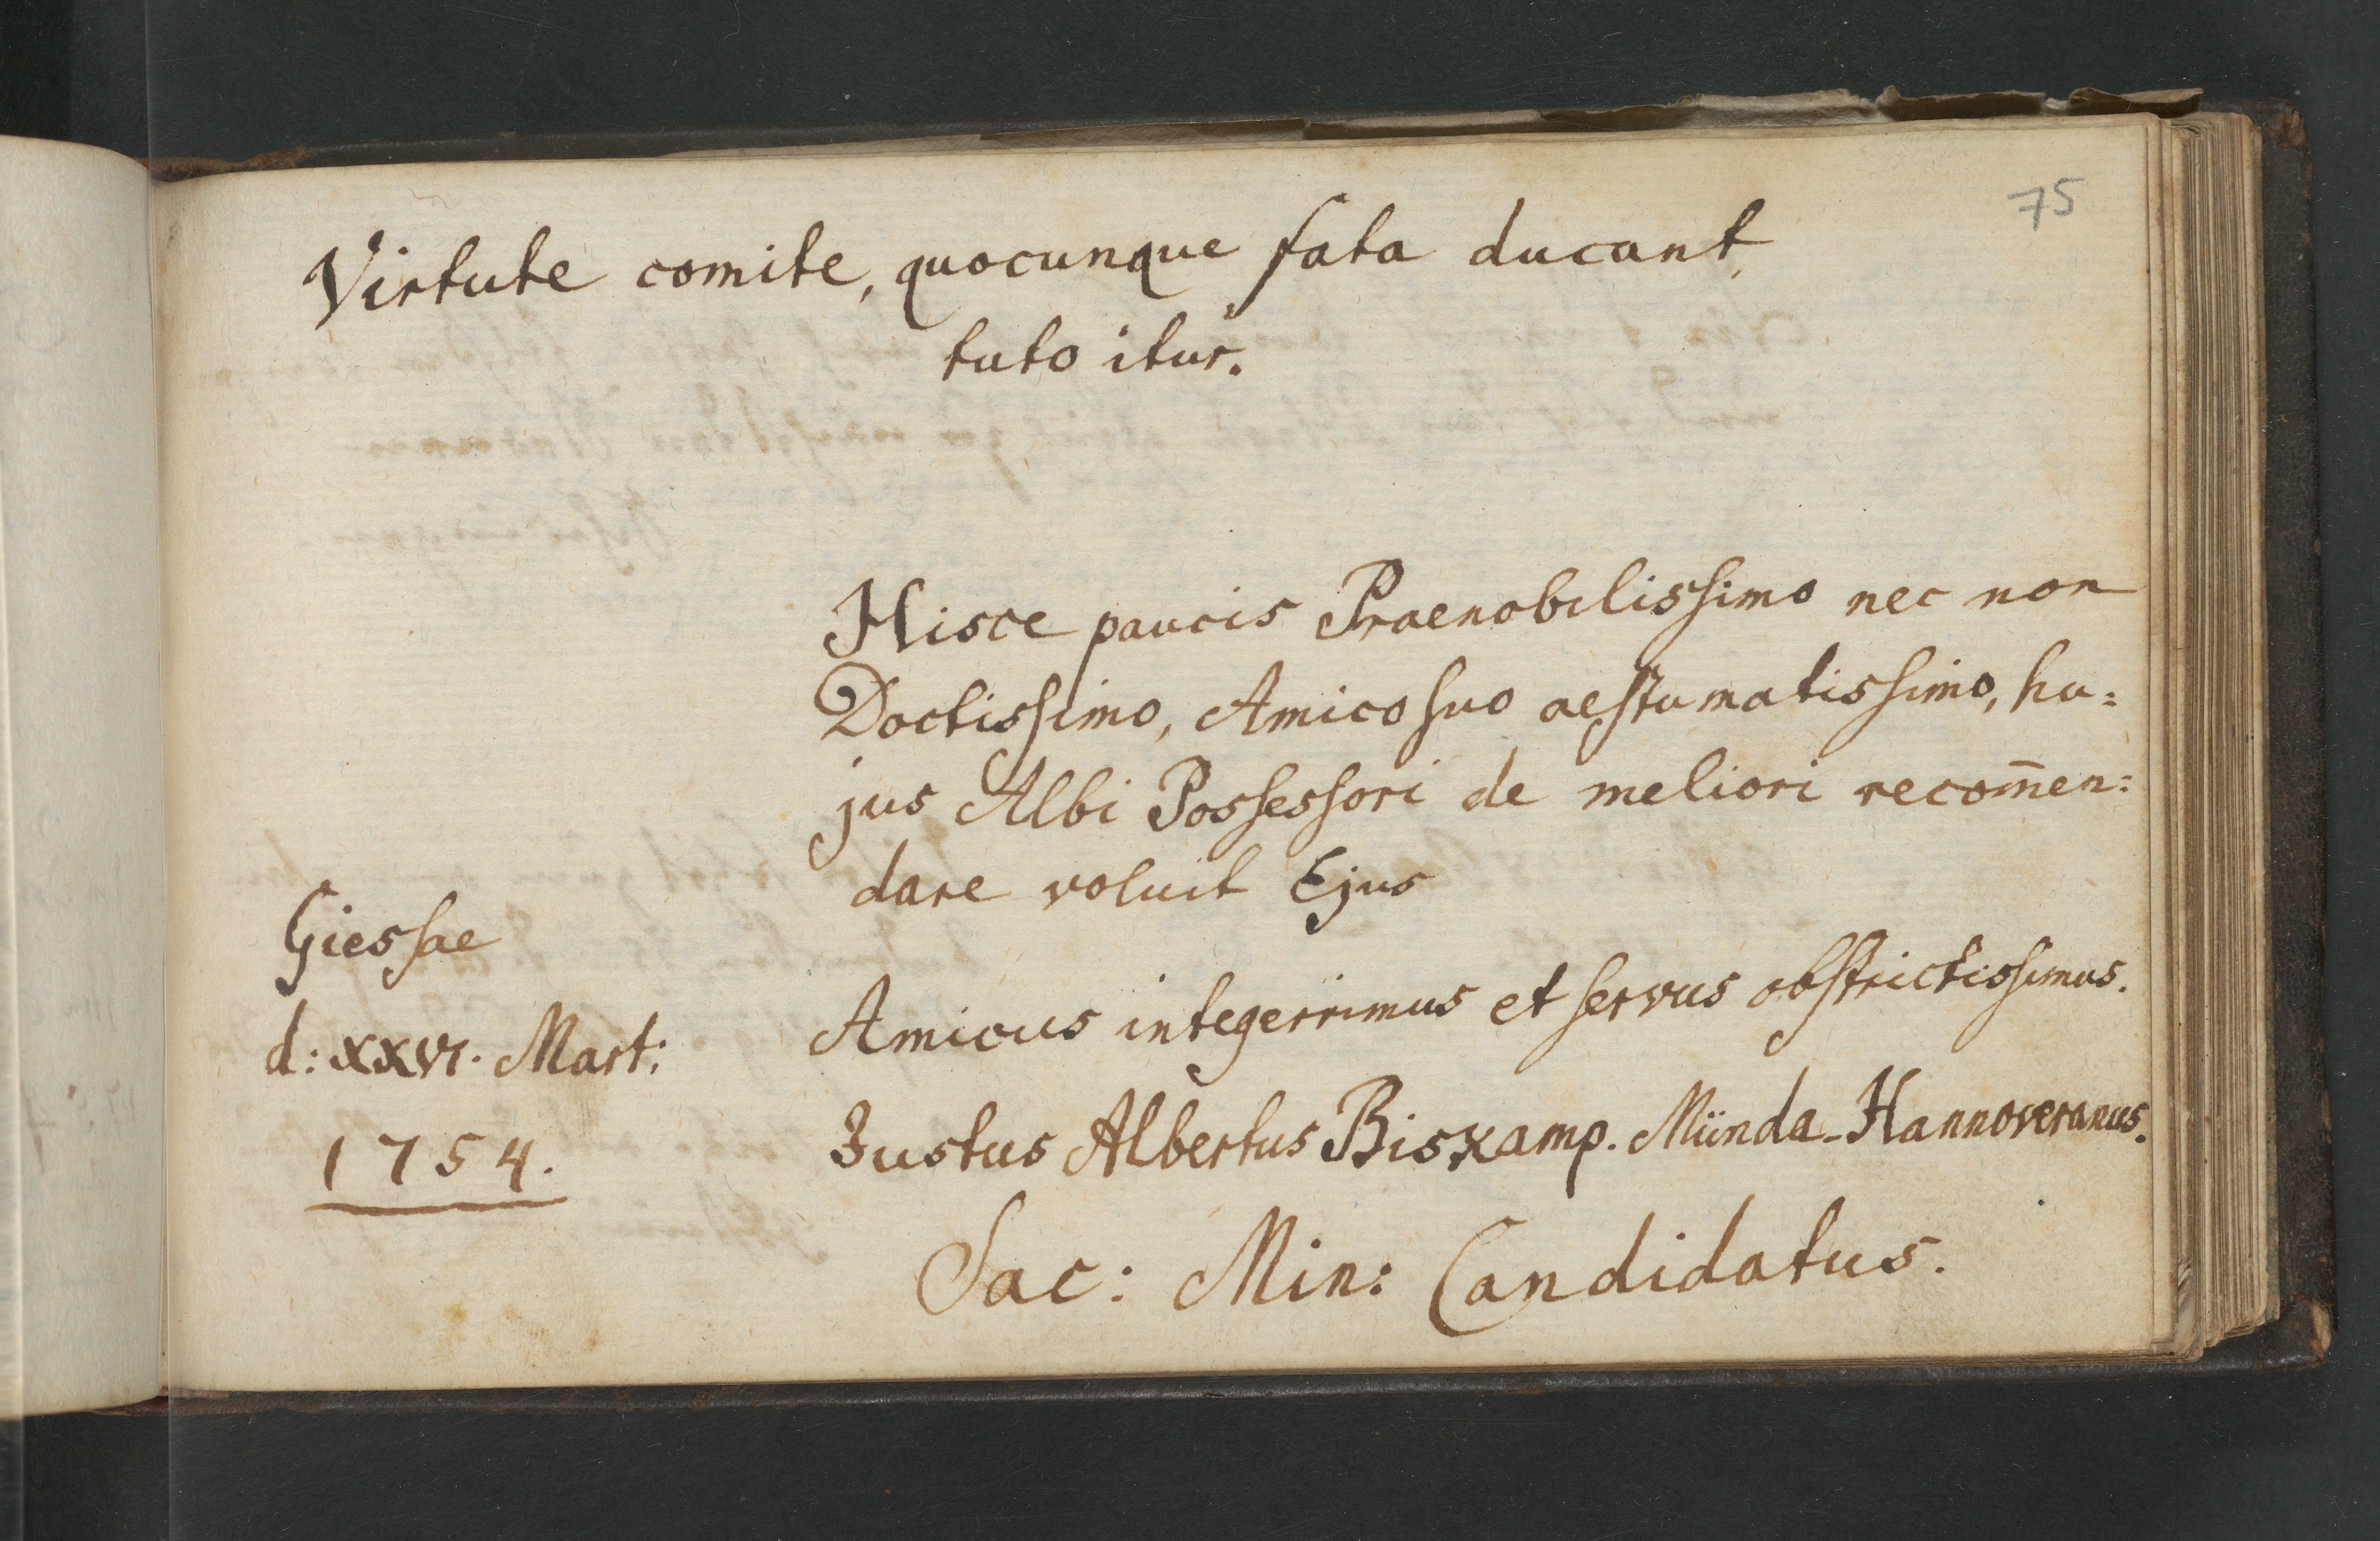 75
Virtute comite, quocunque fata ducant,
tuto itur.
Hisce paucis Praenobilissimo nec non
Doctissimo, Amico suo aestumatissimo, hu=
jus Albi Possessori de meliori recom̄en=
dare voluit Ejus
Amicus integerrimus et servus obstrictissimus.
Justus Albertus Biskamp. Münda-Hannoveranus.
Sac: Min: Candidatus.
Giessae
d: XXVI. Mart:
1754.